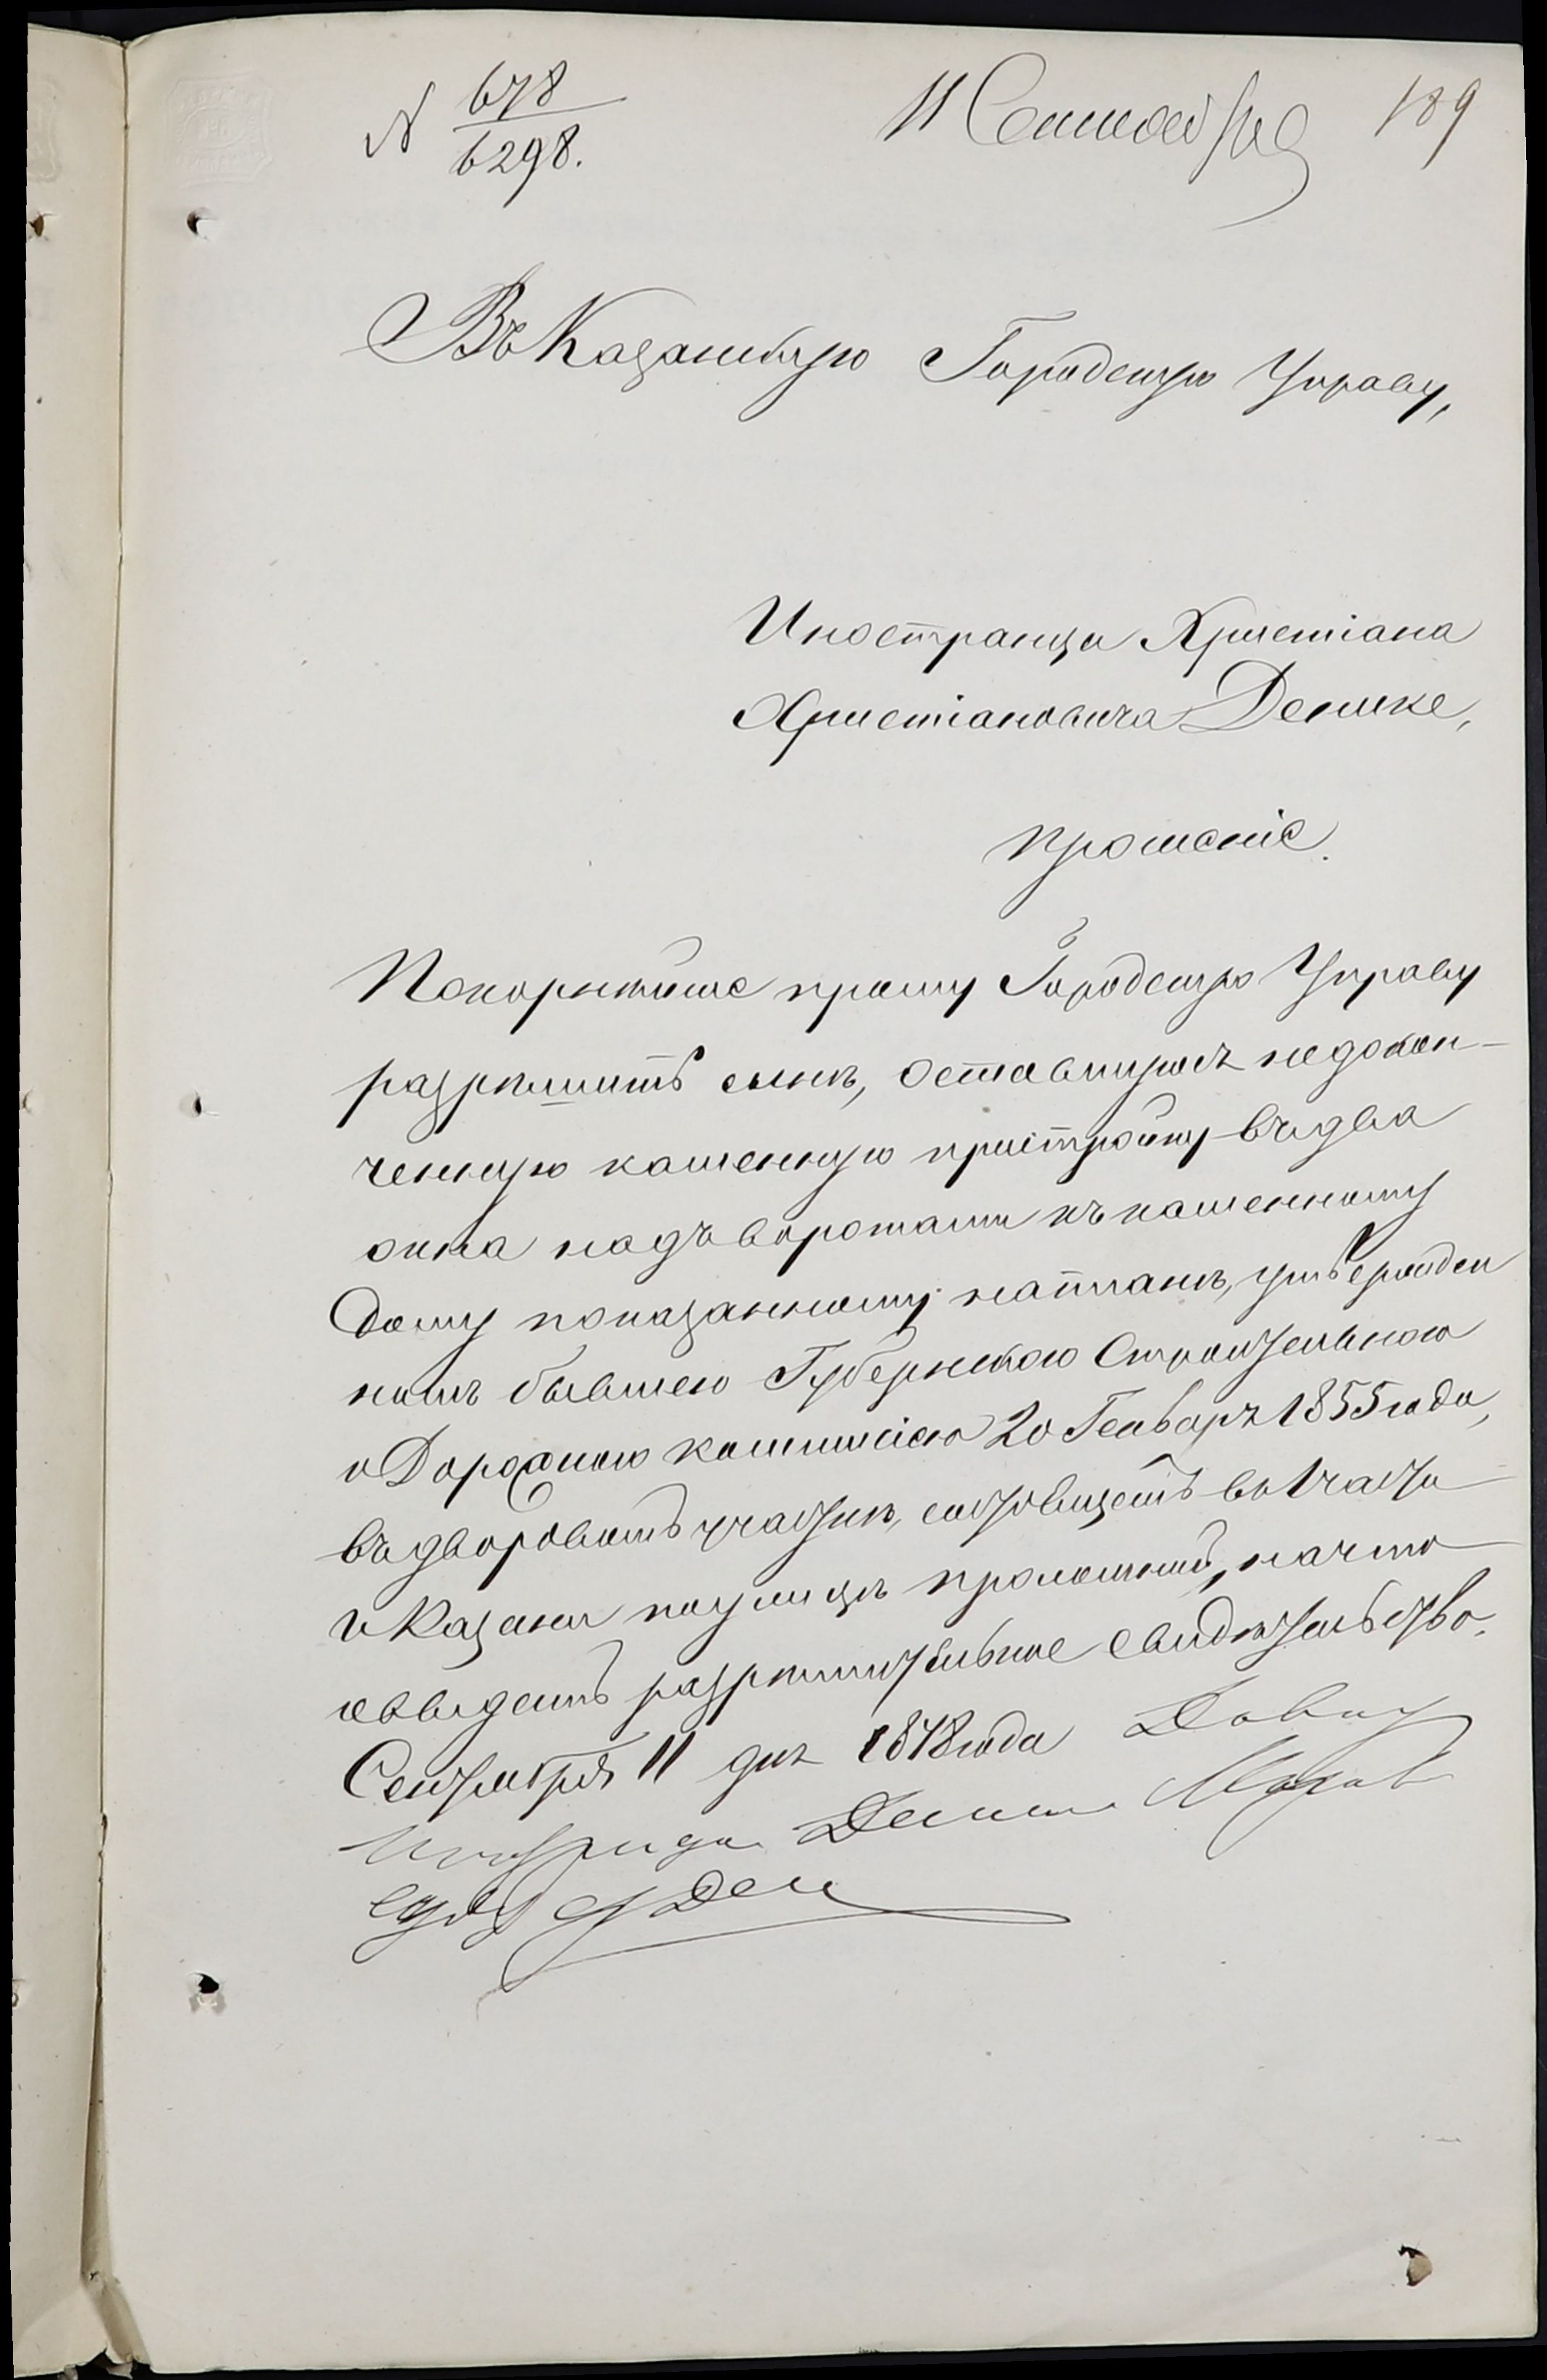 № 678
6298.
11 Сентября 189
Въ Казанскую Городскую Управу,
Иностранца Христіана
Христіановича Денике,
прошеніе.
Покорнѣйше прошу Городскую Управу
разрѣшить мнѣ, оставшуюся недокон-
ченную каменную пристройку въ два
окна надъ воротами къ каменному
дому показанному на планѣ, утвержден
номъ бывшею Губернскою Строительною
и Дорожною коммисіею 20 Генваря 1855 года,
въ дворовомъ участкѣ, состоящемъ въ 1 части
г. Казани по улицѣ Проломной, на что
и выдать разрѣшительное свидѣтельство.
Сентября 11 дня 1878 года